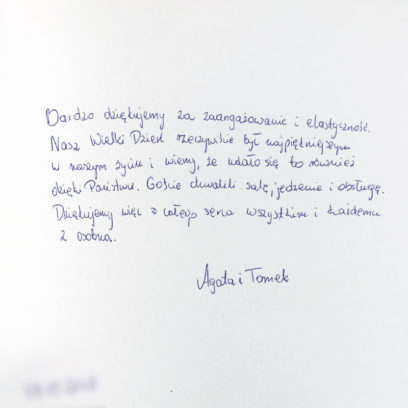 Bardzo dziękujemy za zaangażowanie i elastyczność.
Nasz Wielki Dzień rzeczywiście był najpiękniejszym
w naszym życiu i wiemy, że udało się to również
dzięki Państwu. Goście chwalili salę, jedzenie i obsługę.
Dziękujemy więc z całego serca wszystkim i każdemu
z osobna.
Agata i Tomek